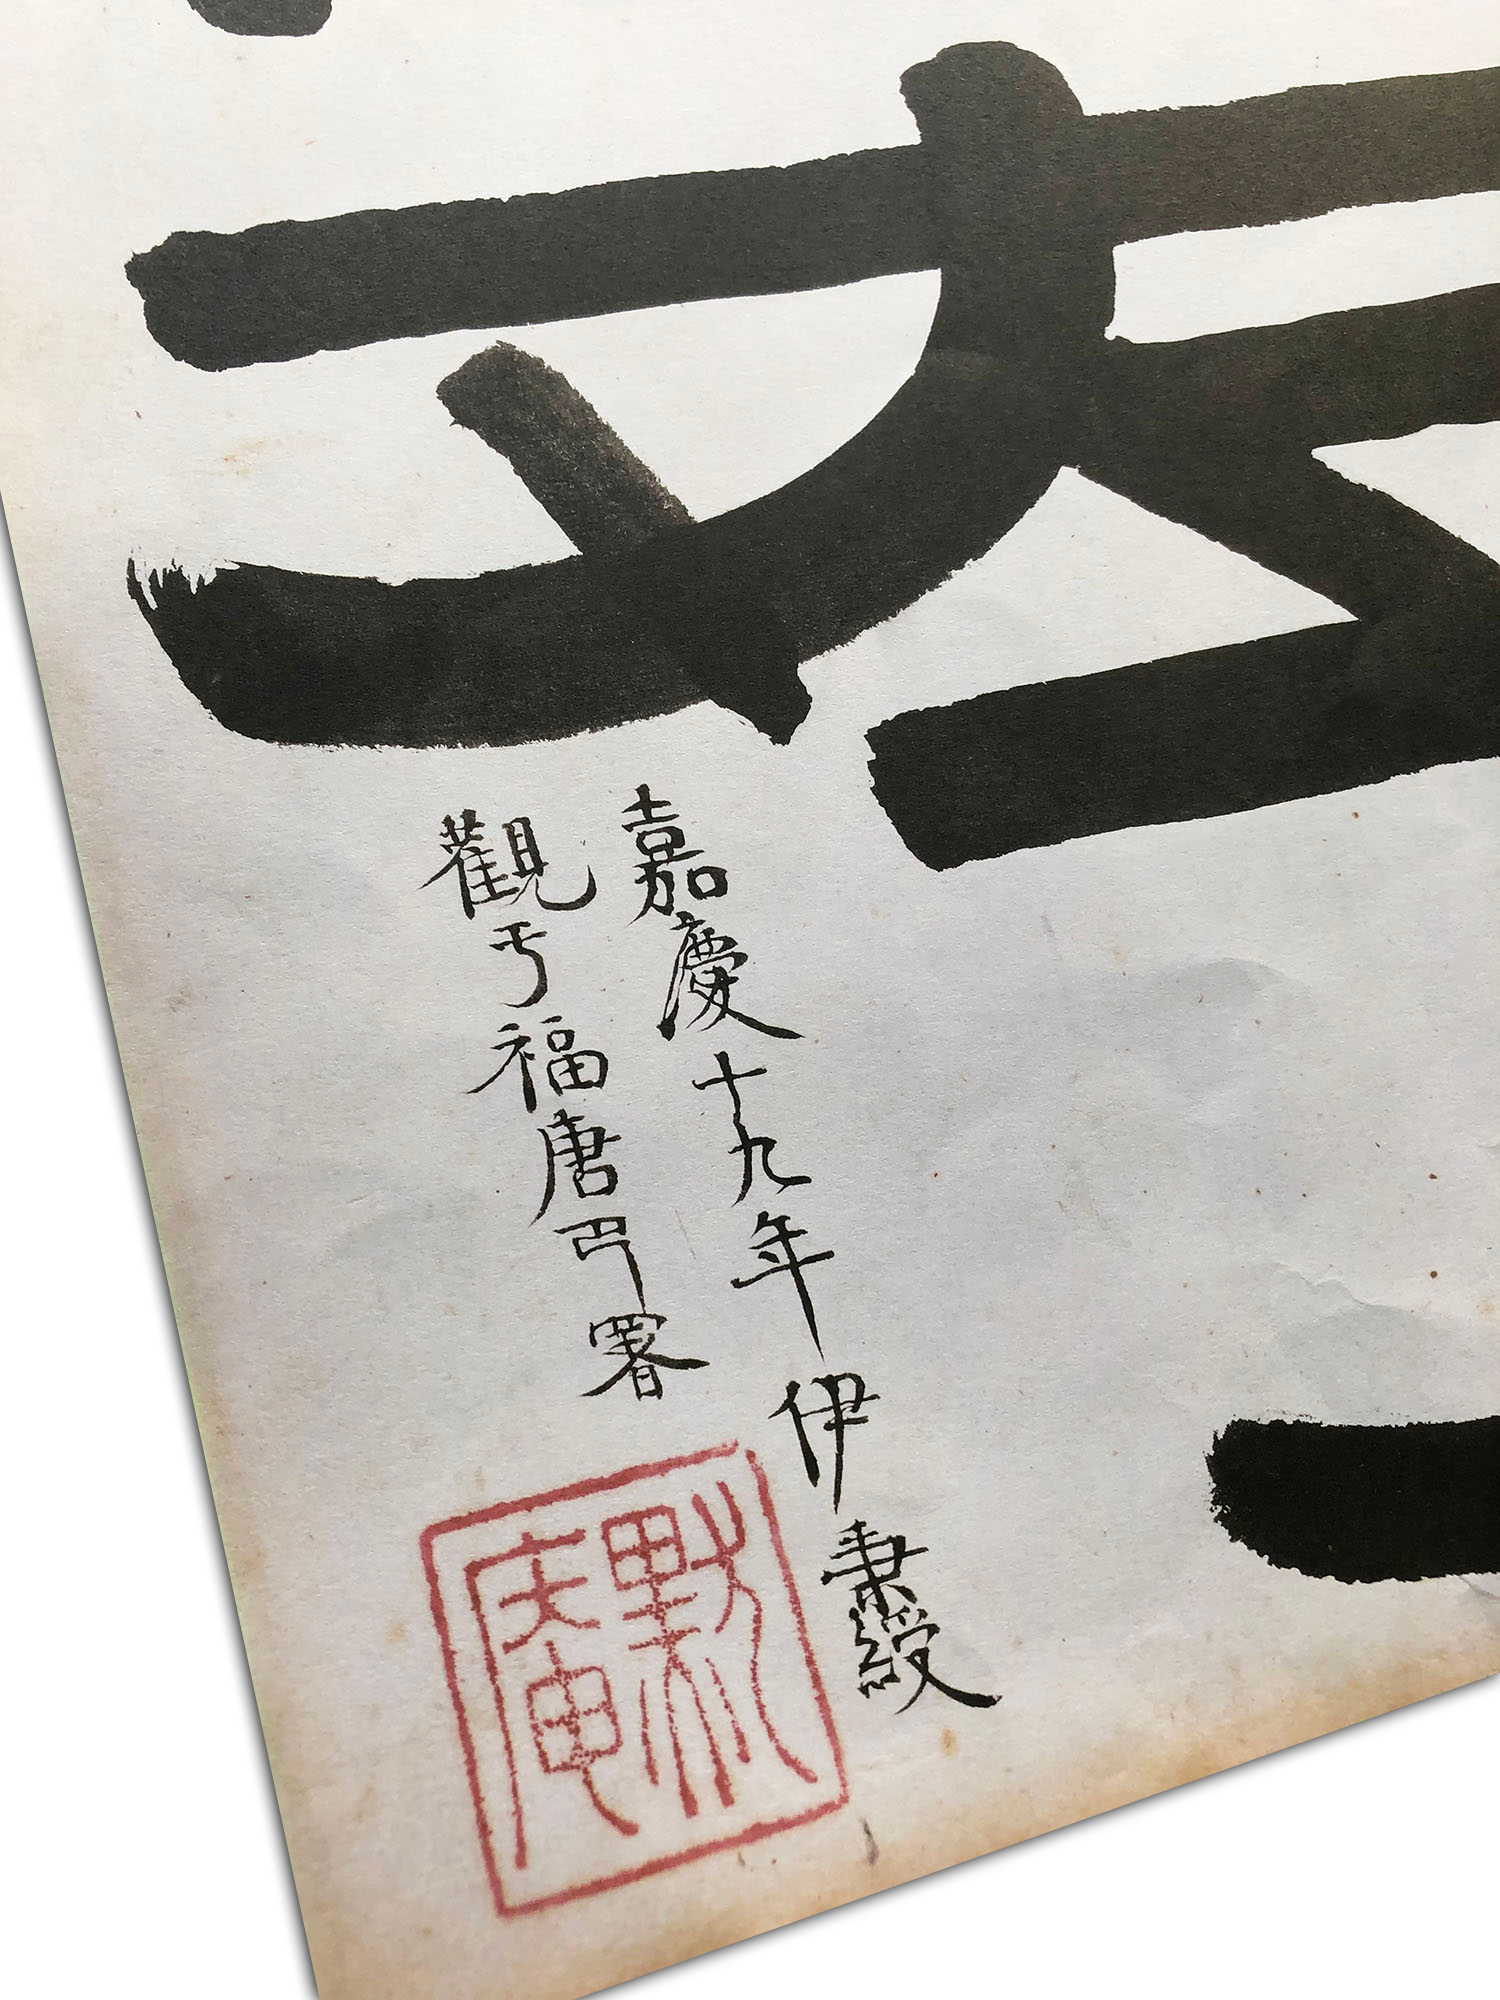 嘉慶十九年伊秉綬
觀亐福唐署
默庵